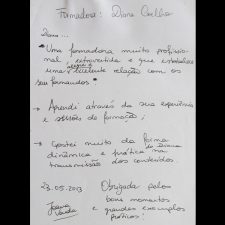 Formadora: Diana Coelho
Diana...
"Uma formadora muito profissio-
nal, extrovertida e que estabelece
uma excelente relação com os
seus formandos"
→ Aprendi através da sua experiência
e sessões de formação;
→ Gostei muito da forma
dinâmica e prática na
transmissão dos conteúdos.
23.05.2013 Obrigada pelos
bons momentos
e grandes exemplos
práticos!